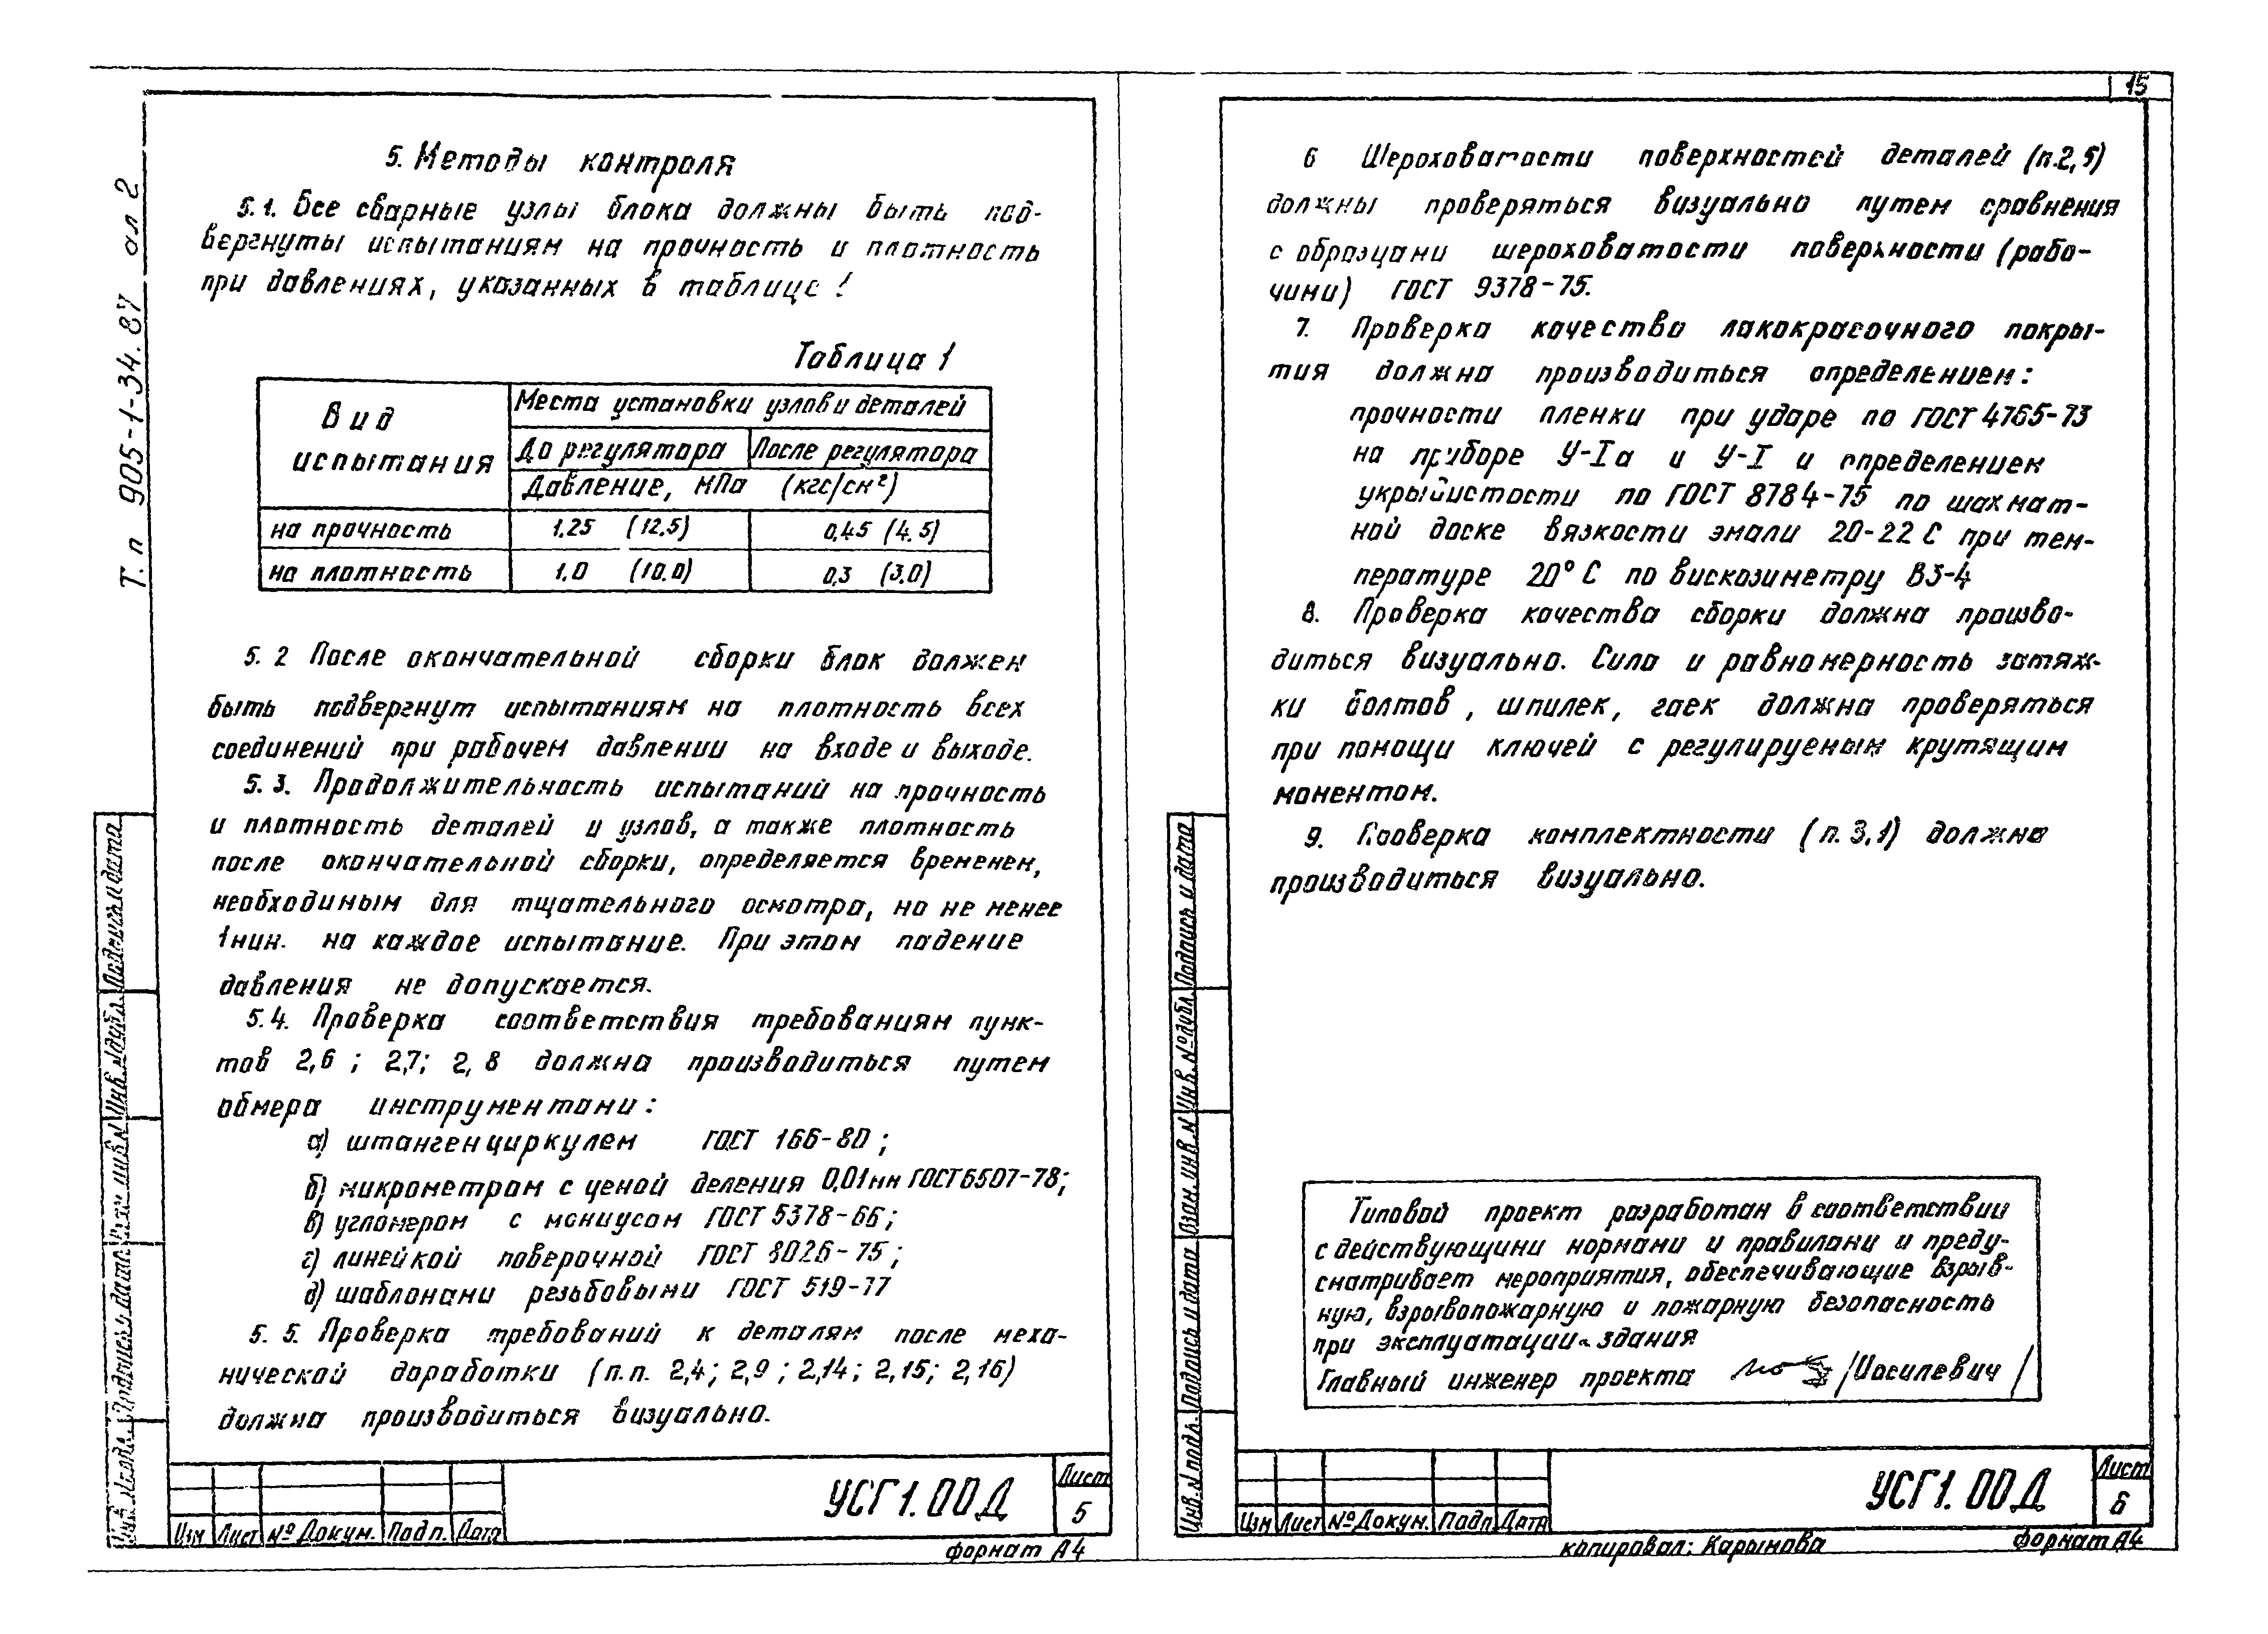 15
Т. п 905-1-34.87 ал 2
5. Методы контроля
5.1. Все сварные узлы блока должны быть под-
вергнуты испытаниям на прочность и плотность
при давлениях, указанных в таблице 1
Таблица 1
Вид испытания
Места установки узлов и деталей
До регулятора После регулятора
Давление, МПа (кгс/см²)
на прочность 1.25 (12.5) 0,45 (4.5)
на плотность 1.0 (10.0) 0,3 (3.0)
5.2 После окончательной сборки блок должен
быть подвергнут испытаниям на плотность всех
соединений при рабочем давлении на входе и выходе.
5.3. Продолжительность испытаний на прочность
и плотность деталей и узлов, а также плотность
после окончательной сборки, определяется временем,
необходимым для тщательного осмотра, но не менее
1мин. на каждое испытание. При этом падение
давления не допускается.
5.4. Проверка соответствия требованиям пунк-
тов 2,6 ; 2,7; 2,8 должна производиться путем
обмера инструментами:
а) штангенциркулем ГОСТ 166-80;
б) микрометром с ценой деления 0,01мм ГОСТ6507-78;
в) угломером с нониусом ГОСТ 5378-66;
г) линейкой поверочной ГОСТ 8026-75;
д) шаблонами резьбовыми ГОСТ 519-77
5.5. Проверка требований к деталям после меха-
нической доработки (п.п. 2,4; 2,9; 2,14; 2,15; 2,16)
должна производиться визуально.
Подпись и дата
Инв.№дубл.
Взам. инв.№
Подпись и дата
Инв.№подл.
Изм Лист № Докум. Подп. Дата
УСГ1.00Д
Лист
5
формат А4
6 Шероховатости поверхностей деталей (п.2,5)
должны проверяться визуально путем сравнения
с образцами шероховатости поверхности (рабо-
чими) ГОСТ 9378-75.
7. Проверка качества лакокрасочного покры-
тия должна производиться определением:
прочности пленки при ударе по ГОСТ 4765-73
на приборе У-Iа и У-I и определением
укрывистости по ГОСТ 8784-75 по шахмат-
ной доске вязкости эмали 20-22 С при тем-
пературе 20° С по вискозиметру ВЗ-4
8. Проверка качества сборки должна произво-
диться визуально. Сила и равномерность затяж-
ки болтов, шпилек, гаек должна проверяться
при помощи ключей с регулируемым крутящим
моментом.
9. Проверка комплектности (п. 3,1) должна
производиться визуально.
Типовой проект разработан в соответствии
с действующими нормами и правилами и преду-
сматривает мероприятия, обеспечивающие взрыв-
ную, взрывопожарную и пожарную безопасность
при эксплуатации здания
Главный инженер проекта /Иосилевич/
Подпись и дата
Инв.№дубл.
Взам. инв.№
Подпись и дата
Инв.№подл.
Изм Лист № Докум. Подп Дата
УСГ1.00Д
Лист
6
копировал: Карымова
формат А4